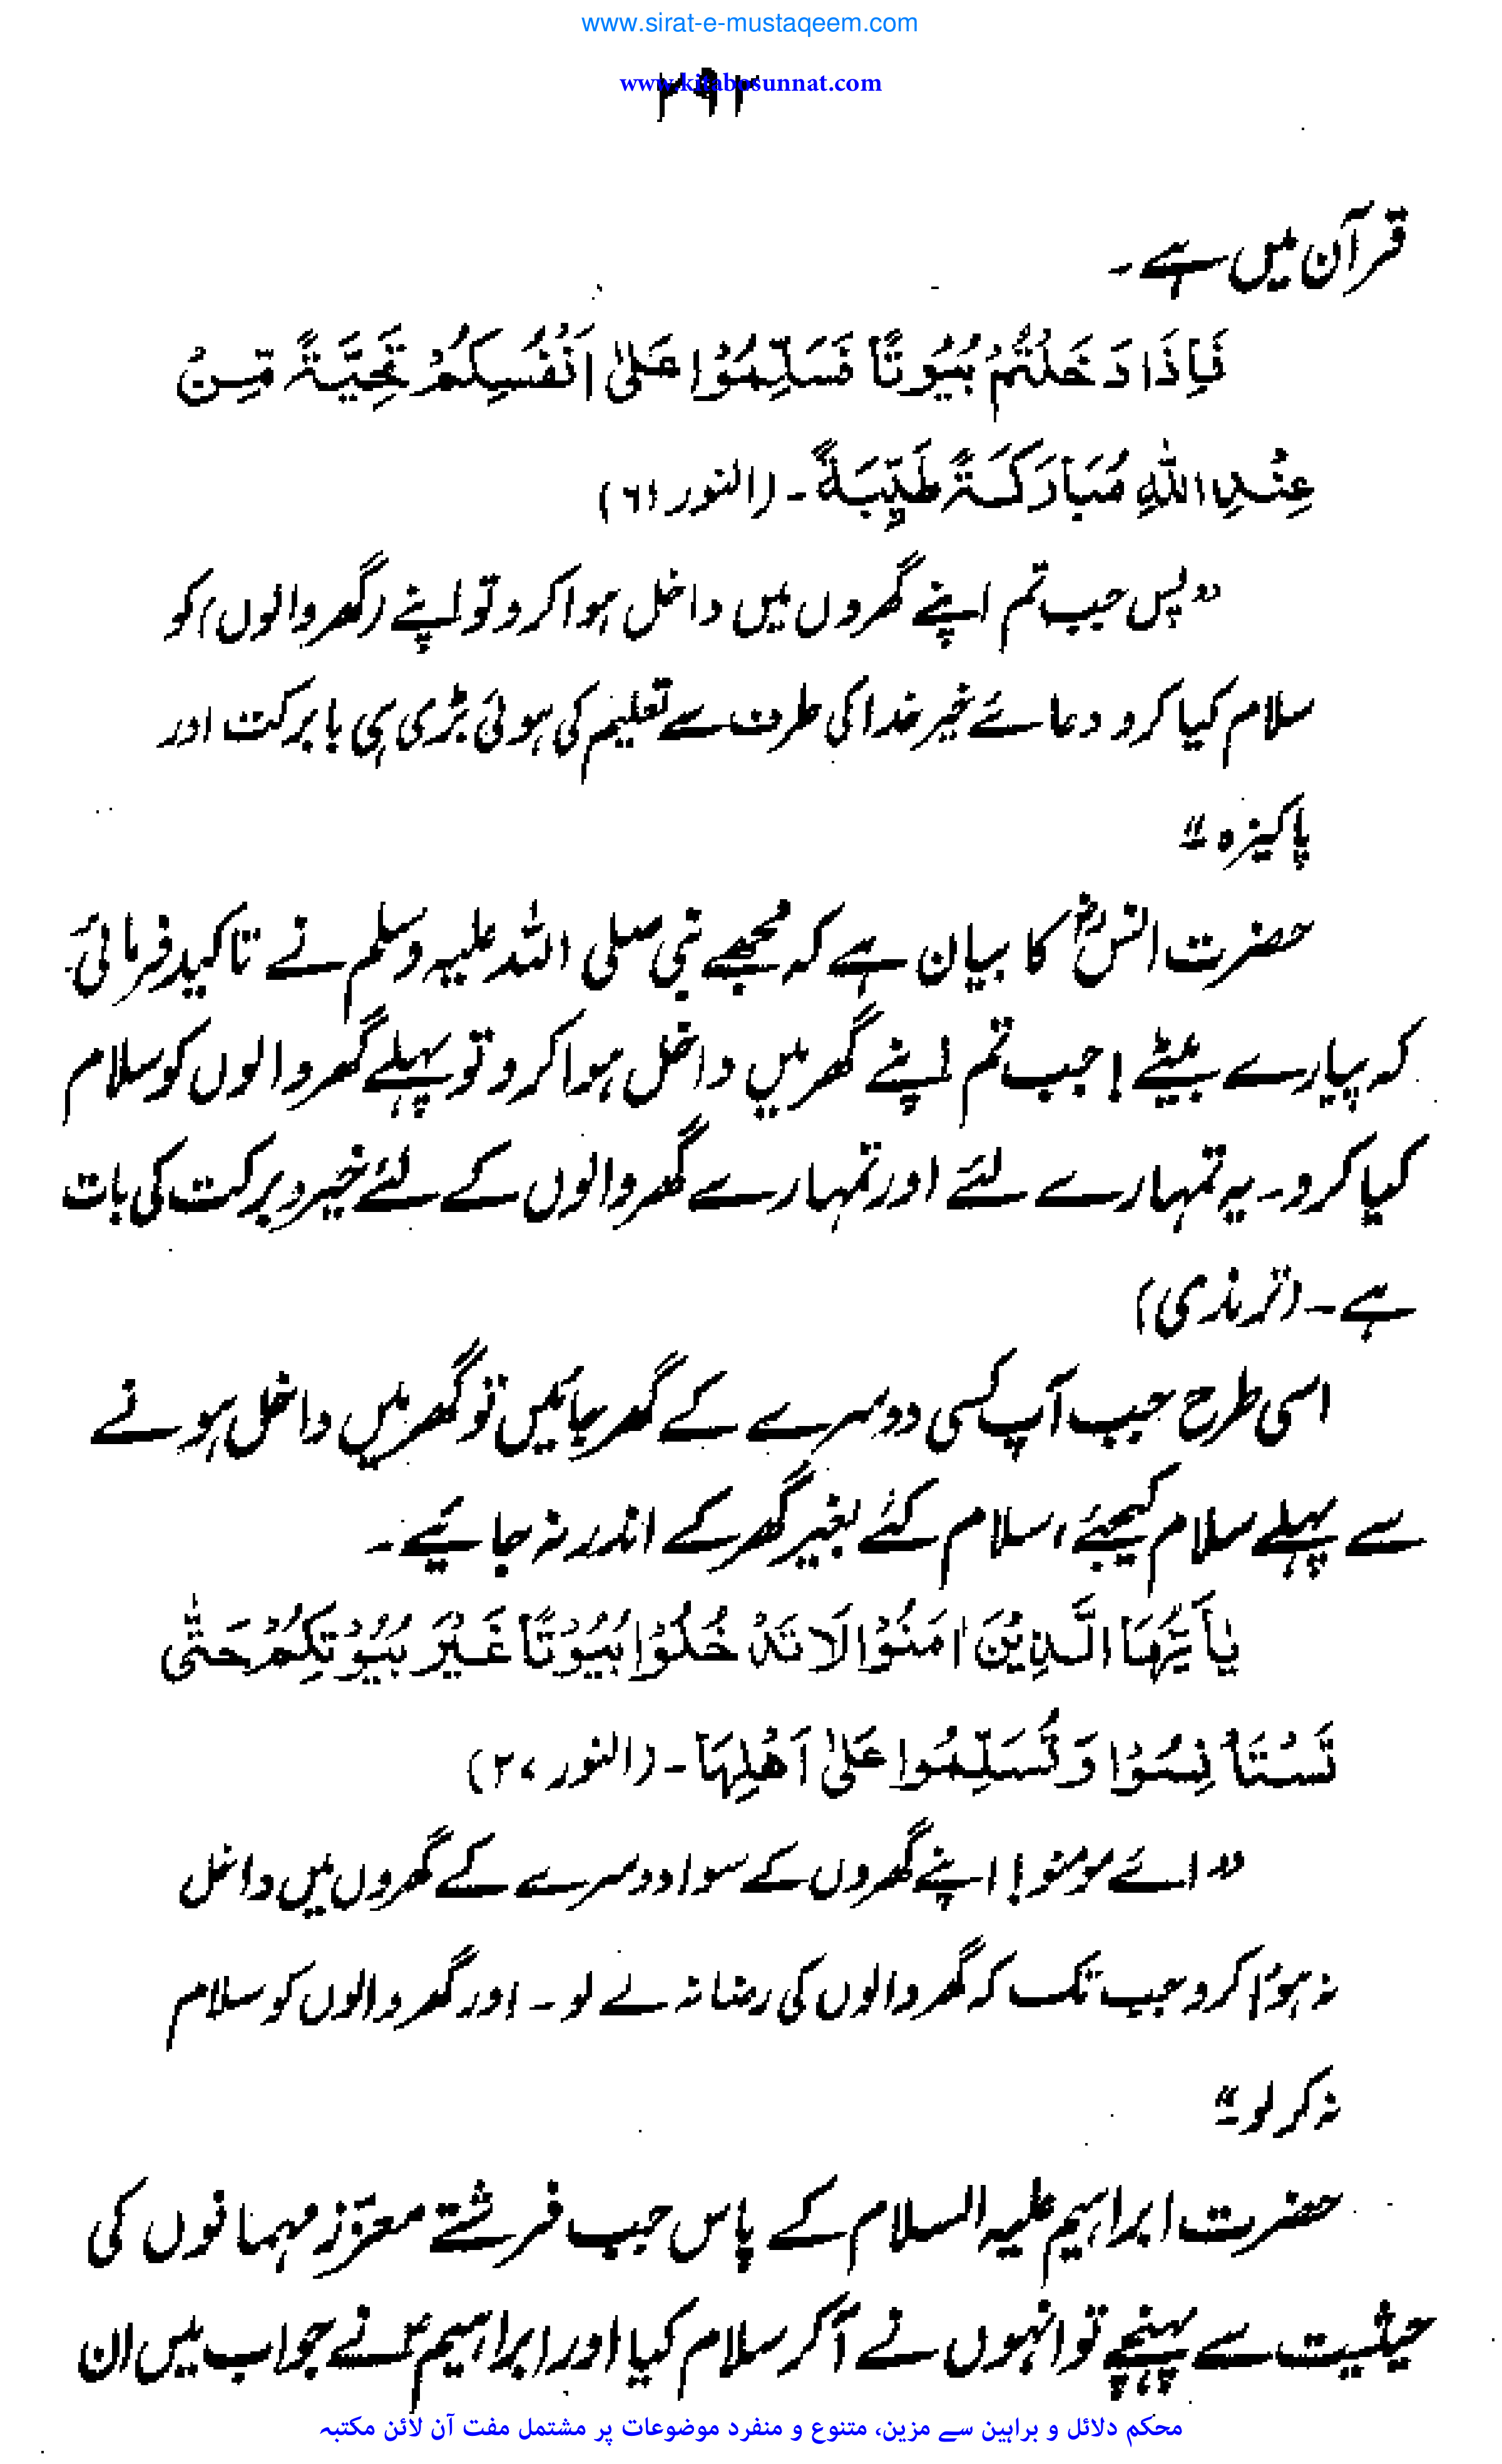 www.sirat-e-mustaqeem.com
www.kitabosunnat.com
۲۹۲
قرآن میں ہے۔
فَاِذَا دَخَلْتُمْ بُیُوْتًا فَسَلِّمُوْا عَلٰی اَنْفُسِکُمْ تَحِیَّۃً مِّنْ
عِنْدِ اللّٰہِ مُبَارَکَۃً طَیِّبَۃً ۔ (النور ۶۱)
”پس جب تم اپنے گھروں میں داخل ہوا کرو تو اپنے (گھر والوں) کو
سلام کیا کرو دعائے خیر خدا کی طرف سے تعلیم کی ہوئی بڑی ہی بابرکت اور
پاکیزہ۔“
حضرت انسؓ کا بیان ہے کہ مجھے نبی صلی اللہ علیہ وسلم نے تاکید فرمائی۔
کہ پیارے بیٹے! جب تم اپنے گھر میں داخل ہوا کرو تو پہلے گھر والوں کو سلام
کیا کرو۔ یہ تمہارے لئے اور تمہارے گھر والوں کے لئے خیر و برکت کی بات
ہے۔ (ترمذی)
اسی طرح جب آپ کسی دوسرے کے گھر جائیں تو گھر میں داخل ہونے
سے پہلے سلام کیجئے، سلام کئے بغیر گھر کے اندر نہ جائیے۔
یٰاَیُّہَا الَّذِیْنَ اٰمَنُوْا لَا تَدْخُلُوْا بُیُوْتًا غَیْرَ بُیُوْتِکُمْ حَتّٰی
تَسْتَاْنِسُوْا وَتُسَلِّمُوا عَلٰی اَھْلِہَا۔ (النور ۲۷)
”اے مومنو! اپنے گھروں کے سوا دوسرے کے گھروں میں داخل
نہ ہوا کرو جب تک کہ گھر والوں کی رضا نہ لے لو۔ اور گھر والوں کو سلام
نہ کر لو۔“
حضرت ابراہیم علیہ السلام کے پاس جب فرشتے معزّز مہمانوں کی
حیثیت سے پہنچے تو انہوں نے آکر سلام کیا اور ابراہیمؑ نے جواب میں ان
محکم دلائل و براہین سے مزین، متنوع و منفرد موضوعات پر مشتمل مفت آن لائن مکتبہ